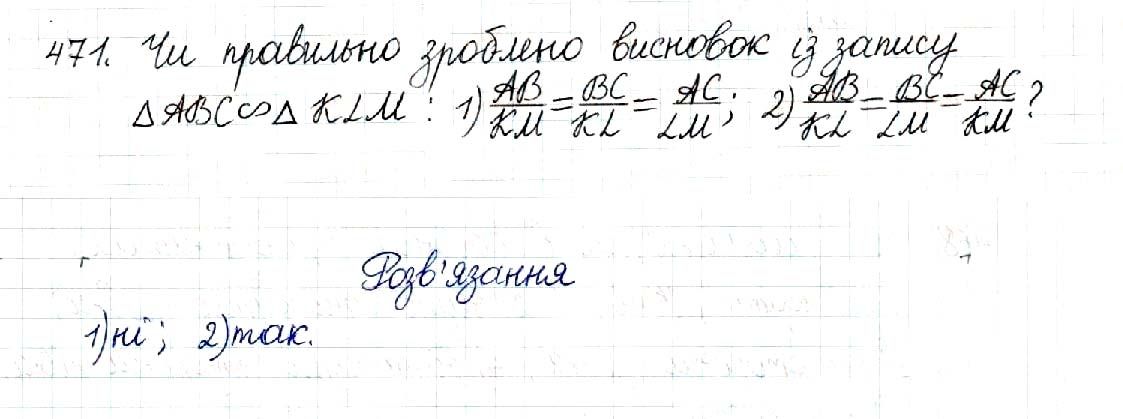 471. Чи правильно зроблено висновок із запису
△ABC∽△KLM: 1) AB/KM = BC/KL = AC/LM; 2) AB/KL = BC/LM = AC/KM?
Розв'язання
1) ні; 2) так.